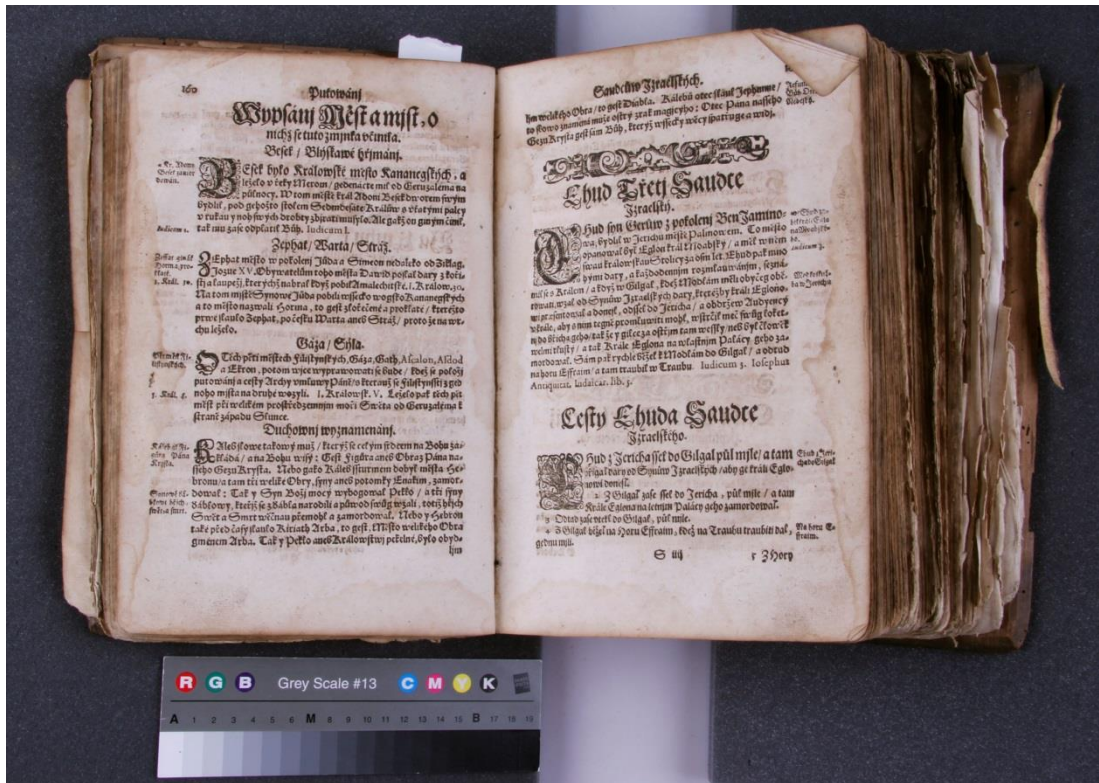 160
Putowánj
Wypsánj Měst a mjst / o
nichž se tuto zmjnka včinila.
Besek / Blýskawé hřjmánj.
BEsek bylo Králowské město Kananegských, a
leželo v řeky Merom / gedenácte mil od Geruzaléma na
půlnocy. W tom městě král Adoni Besek dworem swým
bydlil, pod gehožto stolem Sedmdesáte Králůw s vťatými palcy
v rukau y noh swých drobty zbjrati musylo. Ale gakž on giným činil,
tak mu zase odplatil Bůh. Iudicum I.
Iudicum 1.
Zephat / Warta / Stráž.
ZEphat město w pokolenj Júda a Simeon nedaleko od Ziklag,
Jozue XV. Obywatelům toho města Dawid poslal dary z koři-
sti a laupeží, kterých nabral když pobil Amalechitské. I. Králow. 30.
Na tom mjstě Synowé Júda pobili wssecko wogsko Kananegských
a to město nazwali Horma, to gest zlořečené a prokláté / kteréžto
prwé slaulo Zephat, po česku Warta aneb Stráž / proto že na wr-
chu leželo.
Gáza / Sýla.
O Těch pěti městech Filistynských, Gáza, Gath, Ascalon, Asdod
a Ekron, potom w její wyprawowati se bude / když se položj
putowánj a cesty Archy vmluwy Páně / s kterauž se Filistynsstj z ged-
noho mjsta na druhé wozyli. I. Králowsk. V. Leželo pak těch pět
měst při welikém prostředzemnjm moři Swěta od Geruzaléma k
straně západu Slunce.
5. Král. 5.
Duchownj wyznamenánj.
KAleb slowe takowý muž / kterýž se celým srdcem na Bohu za-
kládá / a na Bohu wisý: Gest Figůra aneb Obraz Pána na-
sseho Gezu Krysta. Nebo gako Káleb ssturmem dobyl města He-
bronu / a tam tři weliké Obry, syny aneb potomky Enakim, zamor-
dowal: Tak y Syn Božj mocý wybogowal Peklo / a tři syny
ďáblowy, kteřjž se z ďábla narodili a půwod swůg wzali, totiž hřjch
Swět a Smrt wěčnau přemohl a zamordowal. Nebo y Hebron
také před časy slaulo Kiriath Arba, to gest, Město welikého Obra
gménem Arba. Tak y Peklo aneb Králowstwj pekelné, bylo obyd-
ljm
Saudcůw Izraelských.
ljm welikého Obra / to gest Diábla. Kálebů otec slaul Jephunne /
to slowo znamená muže ostrý zrak magjcyho: Otec Pána nasseho
Gezu Krysta gest sám Bůh, kterýž wssecky wěcy spatřuge a widj.
Ehud Třetj Saudce
Izraelský.
EHud syn Gerůw z pokolenj BenJamino-
wa, bydlil w Jerichu městě Palmowém. To město
opanowal byl Eglon král Moabský / a měl w něm
swau králowskau Stolicy za osm let. Ehud pak mno-
hými dary, a každodennjm rozmlauwánjm, sezná-
mil se s Králem / a když w Gilgal, kdež Modlám měli obyčeg obě-
towati, wzal od Synůw Izraelských dary, kteréžby králi Eglono-
wi prezentowal a donesl, odssel do Jericha / a obdržew Audyency
v krále, aby o něm tegně promluwiti mohl, wstrčil meč swůg loket-
nj do břicha geho / tak že y gilce za ostřjm tam wesslý / neb byl člowěk
welmi tlustý / a tak Krále Eglona na wlastnjm Palácy geho za-
mordowal. Sám pak rychle běžel k Modlám do Gilgal / a odtud
na horu Effraim / a tam traubil w Traubu. Iudicum 3. Iosephus
Antiquitat. Iudaicar. lib. 5.
Iudicum 3.
Cesty Ehuda Saudce
Izraelského.
EHud z Jericha ssel do Gilgal půl mjle / a tam
přigal dary od Synůw Izraelských / aby ge králi Eglo-
nowi donesl.
2 Z Gilgal zase ssel do Jericha, půl mjle / a tam
Krále Eglona na letnjm Palácy geho zamordowal.
3 Odtud zase vtekl do Gilgal, půl mjle.
4 Z Gilgal běžel na Horu Effraim, kdež na Traubu traubiti dal,
gednu mjli.
Na horu E-
ffraim.
S iiij
5 Z Hory
Grey Scale #13
R G B C M Y K
A 1 2 3 4 5 6 M 8 9 10 11 12 13 14 15 B 17 18 19